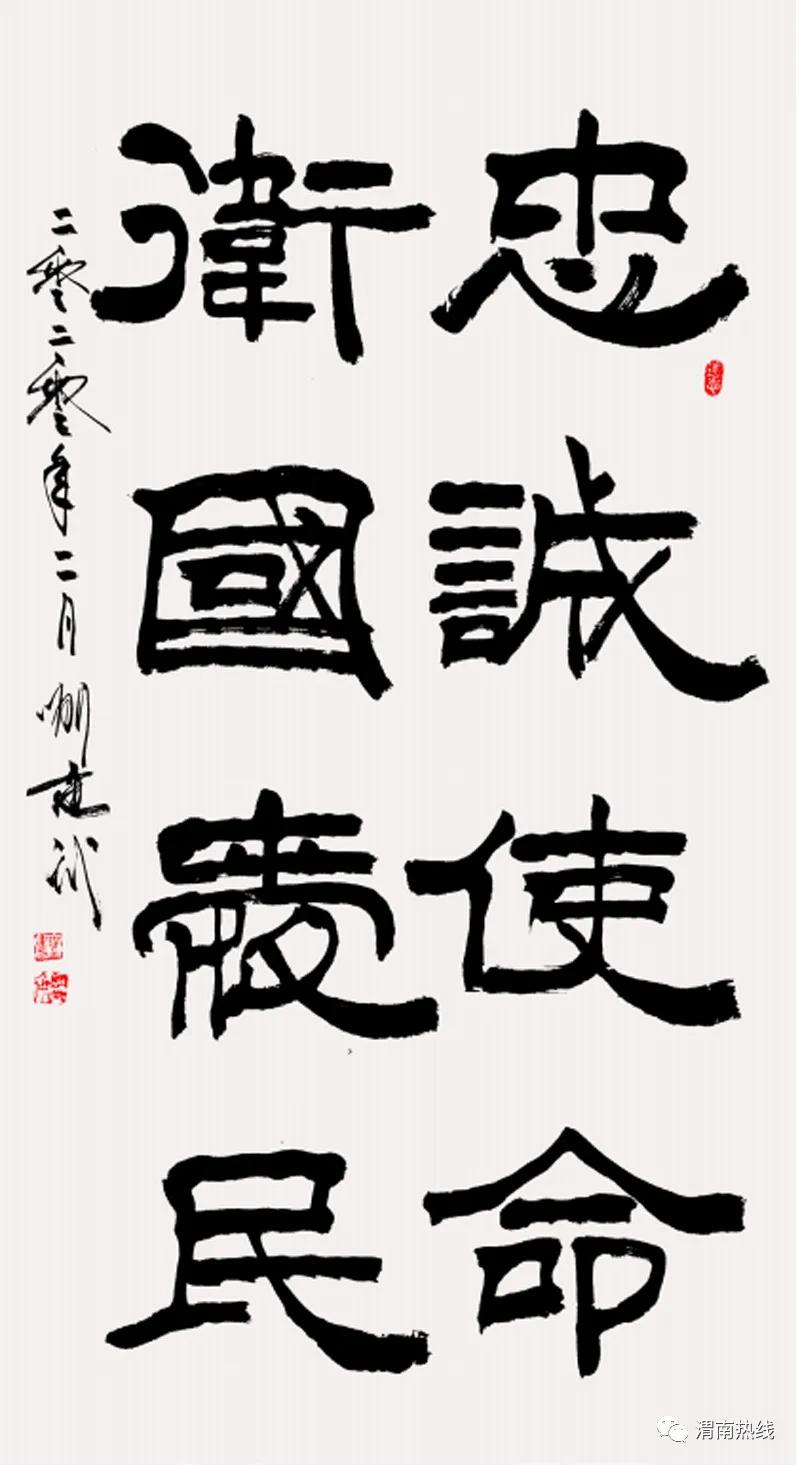 忠誠使命
衛國愛民
二零二零年二月
渭南热线